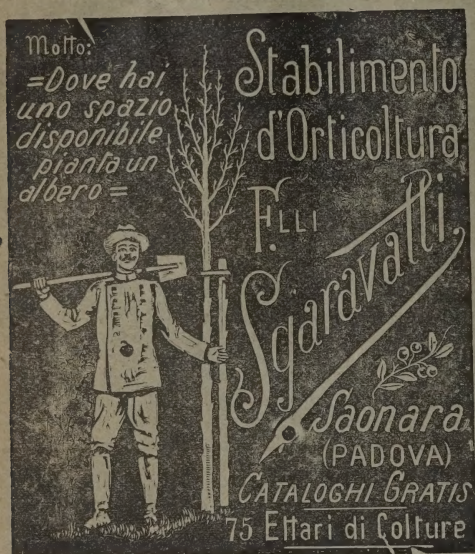 Motto:
=Dove hai
uno spazio
disponibile
pianta un
albero=
Stabilimento
d'Orticoltura
F.LLI
Sgaravatti
Saonara
(PADOVA)
CATALOGHI GRATIS
75 Ettari di Colture